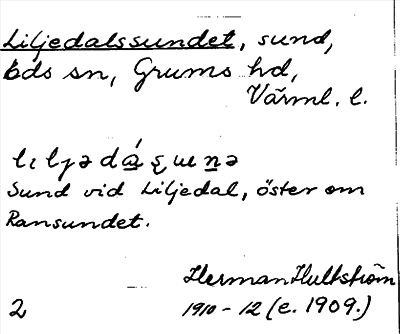 Liljedalssundet, sund,
bds sn, Grums hd,
Värml. l.
Sund vid Liljedal, öster om
Ransundet.
Herman Hultström
2 1910-12 (e. 1909.)